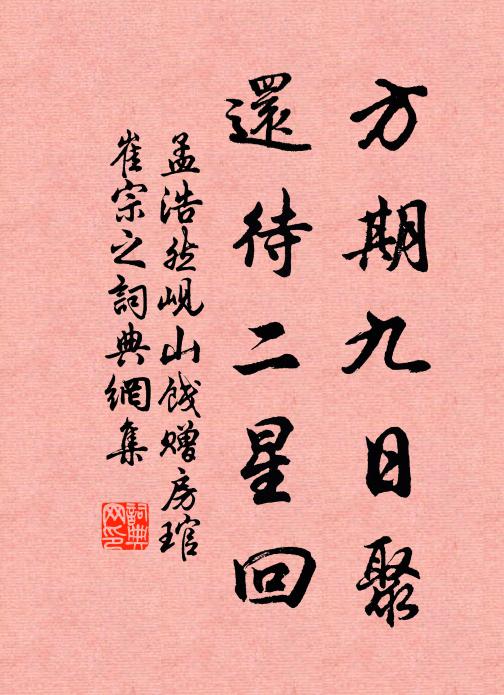 方期九日聚
還待二星回
孟浩然峴山餞赠房琯
崔宗之詞典網集
詞典
网印